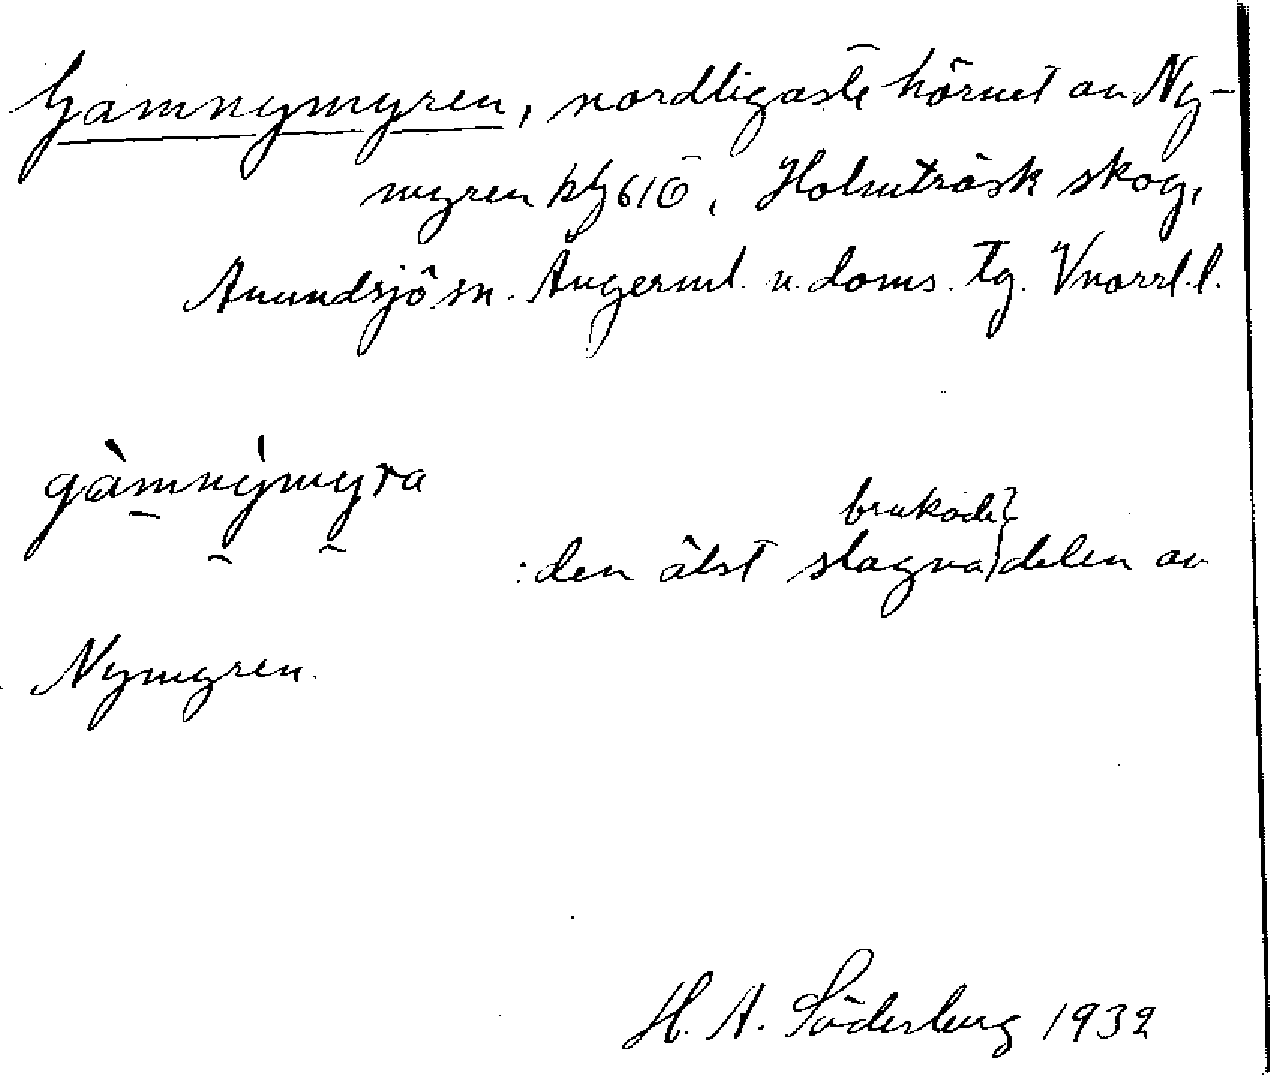 Gamnymyren, nordligaste hörnet av Ny-
myren 616, Holmträsk skog,
Anundsjö sn. Ångerml. n. doms. tg. Vnorrl. l.
gàmnýmyra
brukade
: den älst slagna delen av
Nymyren.
H. A. Söderberg 1932